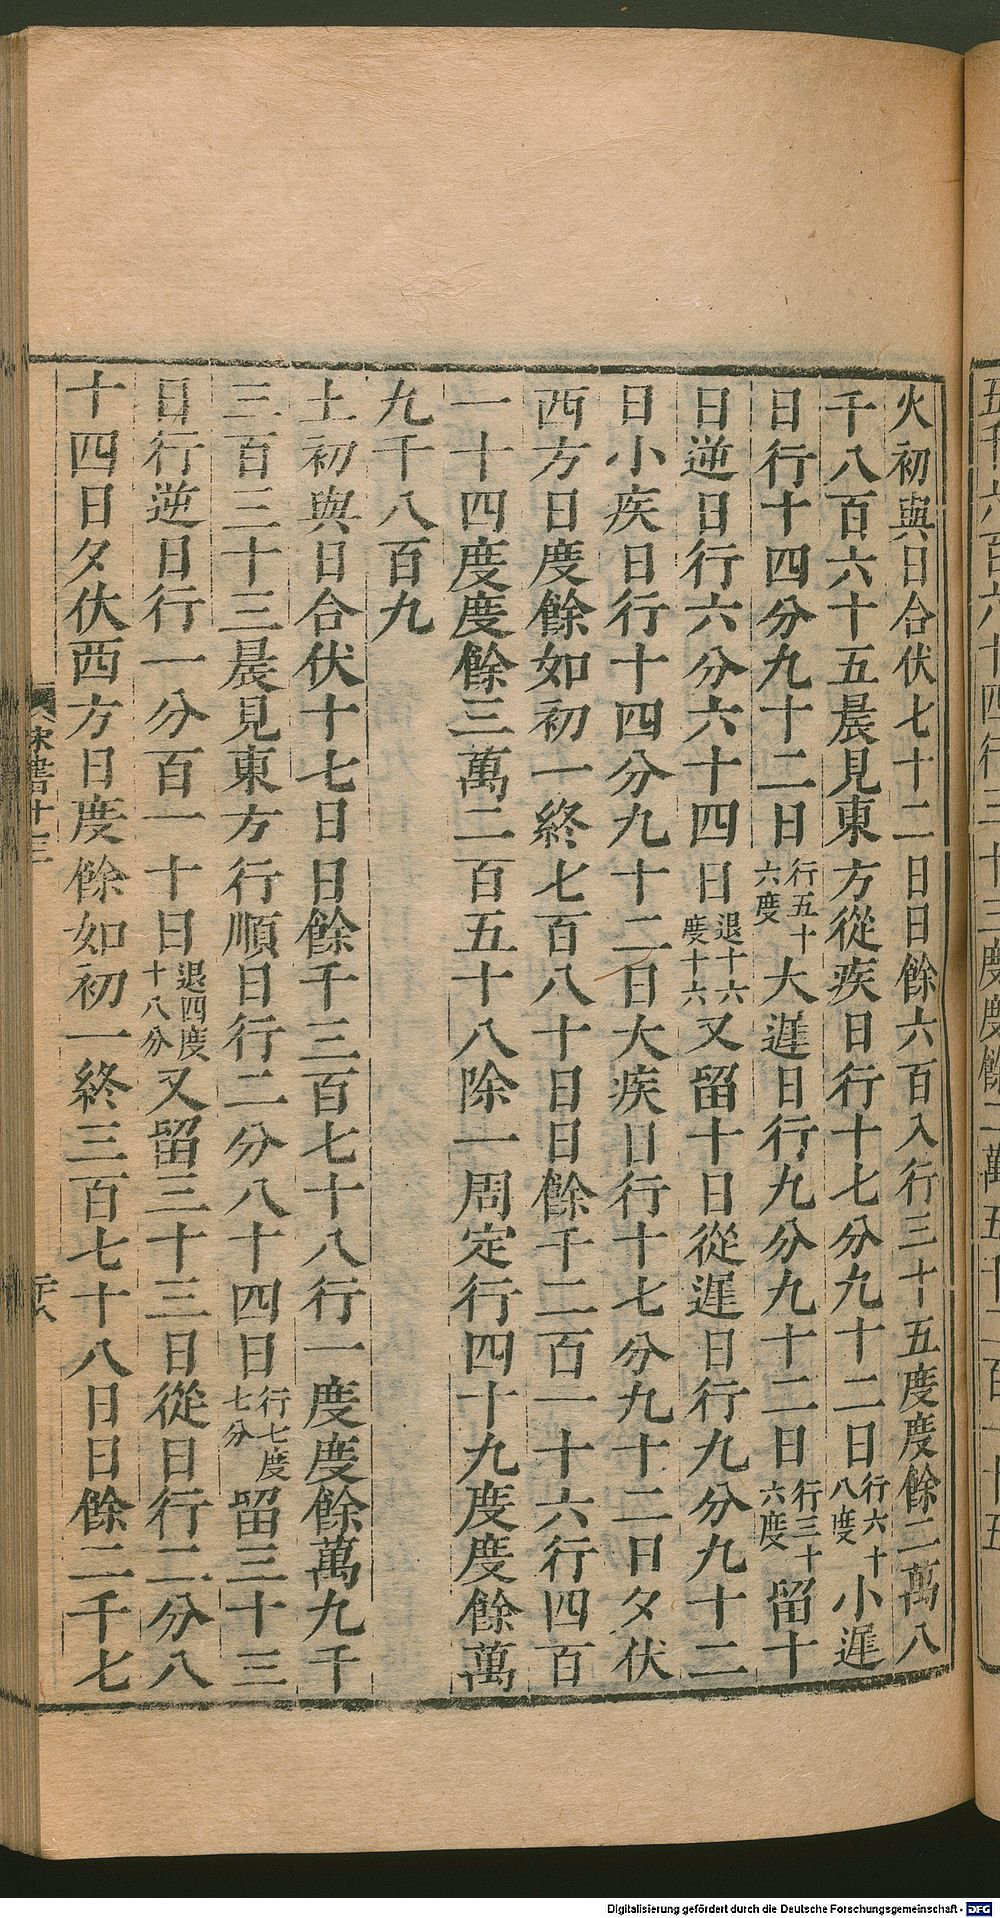 火初與日合伏七十二日日餘六百八行三十五度度餘二萬八
千八百六十五晨見東方從疾日行十七分九十二日行六十八度小遲
日行十四分九十二日行五十六度大遲日行九分九十二日行三十六度留十
日逆日行六分六十四日退十六度十六又留十日從遲日行九分九十二
日小疾日行十四分九十二日大疾日行十七分九十二日夕伏
西方日度餘如初一終七百八十日日餘千二百一十六行四百
一十四度度餘三萬二百五十八除一周定行四十九度度餘萬
九千八百九
土初與日合伏十七日日餘千三百七十八行一度度餘萬九千
三百三十三晨見東方行順日行二分八十四日行七度七分留三十三
日行逆日行一分百一十日退四度十八分又留三十三日從日行二分八
十四日夕伏西方日度餘如初一終三百七十八日日餘二千七
宋書十三
Digitalisierung gefördert durch die Deutsche Forschungsgemeinschaft - DFG